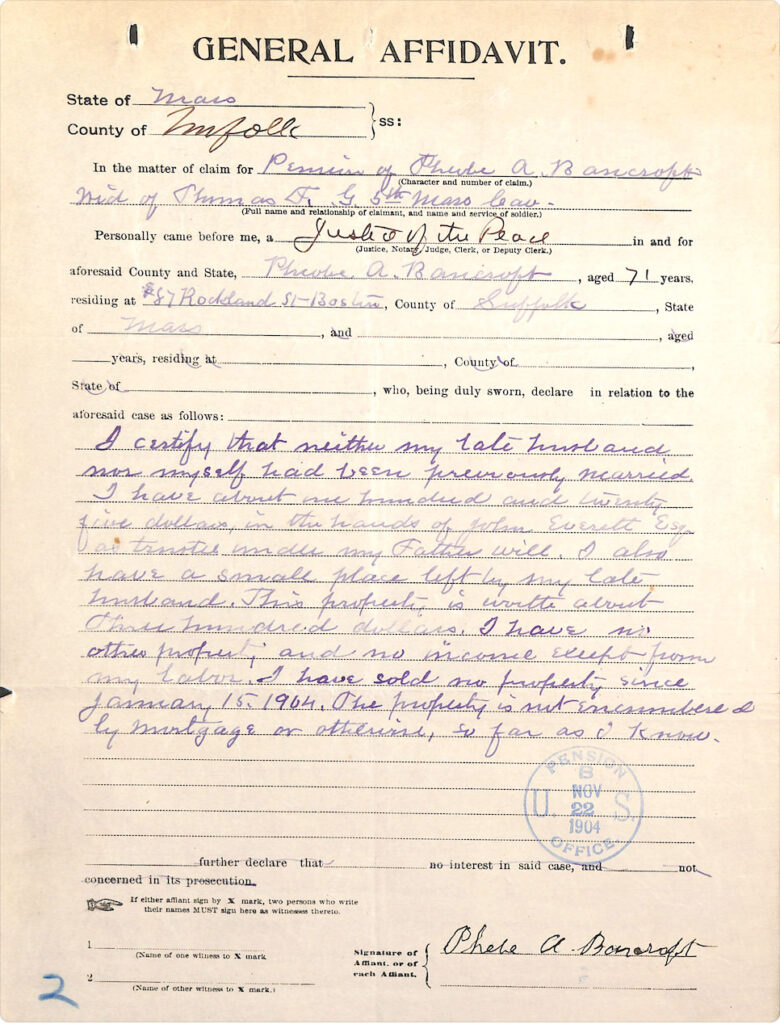 GENERAL AFFIDAVIT.
State of Mass
County of Suffolk } ss:
In the matter of claim for Pension of Phebe A. Bancroft
(Character and number of claim.)
Wid of Thomas F. G 5th Mass Cav.
(Full name and relationship of claimant, and name and service of soldier.)
Personally came before me, a Justice of the Peace in and for
(Justice, Notary, Judge, Clerk, or Deputy Clerk.)
aforesaid County and State, Phebe A. Bancroft, aged 71 years,
residing at 87 Rockland St-Boston, County of Suffolk, State
of Mass, and , aged
years, residing at , County of ,
State of , who, being duly sworn, declare in relation to the
aforesaid case as follows:
I certify that neither my late husband
nor myself had been previously married.
I have about one hundred and twenty
five dollars, in the hands of John Everett Esq
as trustee under my Father will. I also
have a small place left by my late
husband. This property is worth about
three hundred dollars. I have no
other property and no income except from
my labor. I have sold no property since
January 15. 1904. The property is not encumbered
by mortgage or otherwise, so far as I know.
PENSION
8
U. NOV S.
22
1904
OFFICE.
further declare that no interest in said case, and not
concerned in its prosecution.
If either affiant sign by X mark, two persons who write
their names MUST sign here as witnesses thereto.
1
(Name of one witness to X mark
2
(Name of other witness to X mark.)
Signature of
Affiant, or of
each Affiant.
Phebe A Bancroft
2